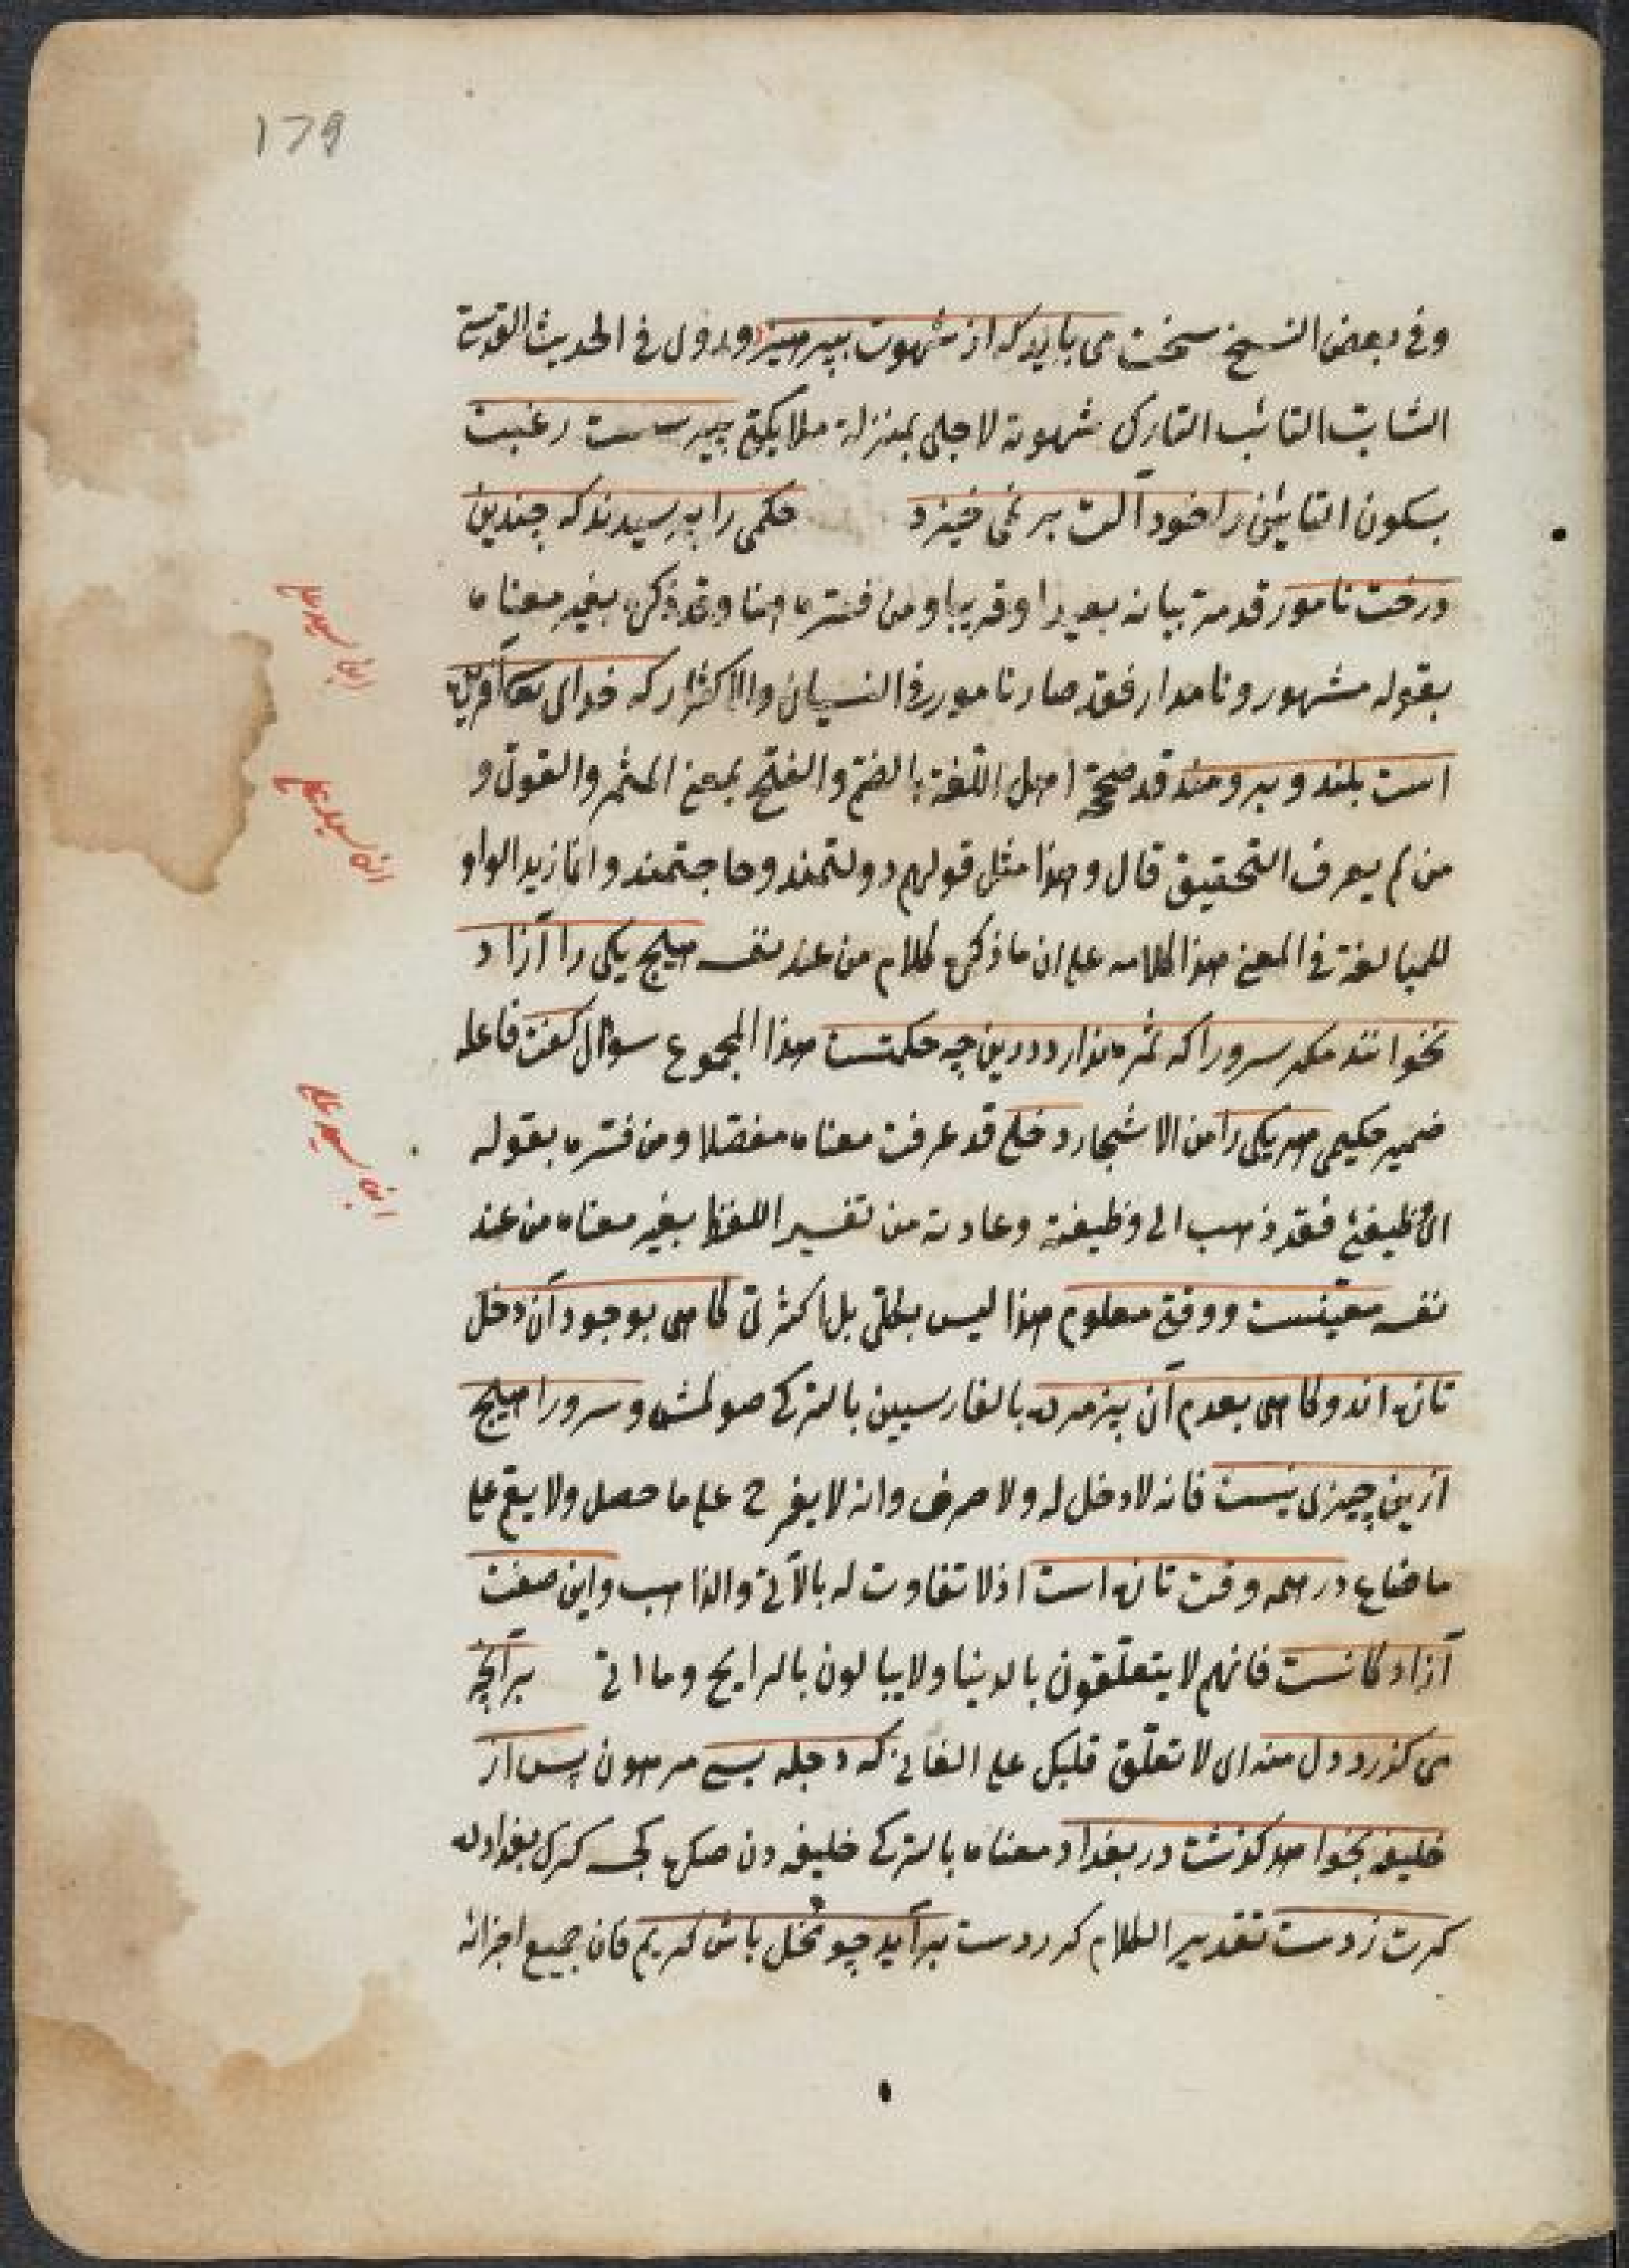 179
وفی بعض النسخ سخت می باید که از شهوت بپرهیزد وروی فی الحدیث القدسی
الشاب التائب التارک شهوته لاجلی بمنزلة ملایکتی پیر سست رغبت
بسکون التا یئنی را خود آلت برنمی خیزد حکمی را پرسیدند که چندین
درخت نامور قد مر بیانه بعیدا وقریبا ومن فسره هنا وقد ذکره بغیر معناه
بقوله مشهور ونامدار فقد صار نامور فی النسیان والاکثار که خدای تعا آفریده
است بلند وبرومند قد صححه اهل اللغة بالضم والفتح بمعنی المثمر والقوی و
من لم یعرف التحقیق قال وهذا مثل قولهم دولتمند وحاجتمند وانما زید الواو
للمبالغة فی المعنی هذا کلامه علی ان ما ذکره کلام من عند نفسه هیچ یکی را آزاد
نخوانند مکر سرو را که ثمره ندارد درین چه حکمتست هذا المجموع سوال کفت فاعله
ضمیر حکیمی هر یکی را من الاشجار دخلی قد عرفت معناه مفصلا ومن فسره بقوله
ای وظیفئ فقد ذهب الی وظیفته وعادته من تفسیر اللفظ بغیر معناه من عند
نفسه معینست ووقتی معلوم هذا لیس بکلی بل اکثری کاهی بوجود آن دخل
تازه اند وکاهی بعدم آن پژمرده بالفارسیین بالترکی صولمش وسرو را هیچ
ازین چیزی نیست فانه لا دخل له ولا صرف وانه لا یفرح علی ما حصل ولا یقع علی
ما ضاع در همه وقت تازه است اذ لا تفاوت له بالآتی والذاهب واین صفت
آزادکانست فانهم لا یتعلقون بالدنیا ولا یبالون بالرایح وما اتی برآنچه
می کذرد دل منه ای لا تعلق قلبک علی الفانی که دجله بسی مرهون پس از
خلیفه بخواهد کذشت در بغداد معناه بالترکی خلیفه دن صکره کجسه کرک بغدادده
کرت زدست تقدیر الکلام کر ز دست برآید چو نخل باش کریم فان جمیع اجزائه